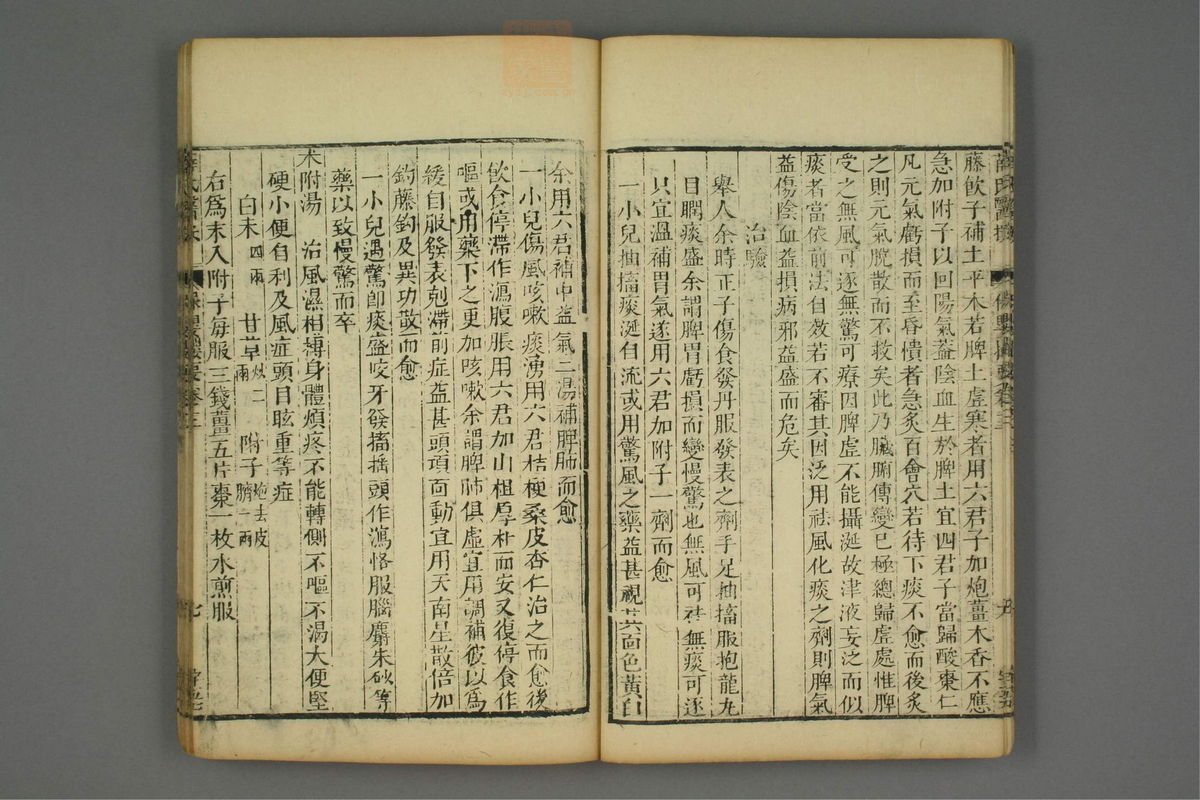 藤飲子補土平木若脾土虛寒者用六君子加炮薑木香不應
急加附子以回陽氣蓋陰血生於脾土宜四君子當歸酸棗仁
凡元氣虧損而至昏憒者急灸百會穴若待下痰不愈而後灸
之則元氣脫散而不救矣此乃臟腑傳變已極總歸虛處惟脾
受之無風可逐無驚可療因脾虛不能攝涎故津液妄泛而似
痰者當依前法自效若不審其因泛用祛風化痰之劑則脾氣
益傷陰血益損病邪益盛而危矣
治驗
舉人余時正子傷食發丹服發表之劑手足抽搐服抱龍丸
目瞤痰盛余謂脾胃虧損而變慢驚也無風可祛無痰可逐
只宜溫補胃氣遂用六君加附子一劑而愈
一小兒抽搐痰涎自流或用驚風之藥益甚視其面色黃白
余用六君補中益氣二湯補脾肺而愈
一小兒傷風咳嗽痰湧用六君桔梗桑皮杏仁治之而愈後
飲食停滯作瀉腹脹用六君加山楂厚朴而安又復停食作
嘔或用藥下之更加咳嗽余謂脾肺俱虛宜用調補彼以為
緩自服發表剋滯前症益甚頭項面動宜用天南星散倍加
鈎藤鈎及異功散而愈
一小兒遇驚即痰盛咬牙發搐搖頭作瀉恪服腦麝朱砂等
藥以致慢驚而卒
朮附湯 治風濕相搏身體煩疼不能轉側不嘔不渴大便堅
硬小便自利及風症頭目眩重等症
白朮四兩 甘草炒二兩 附子炮去皮臍一兩
右為末入附子每服三錢薑五片棗一枚水煎服
七